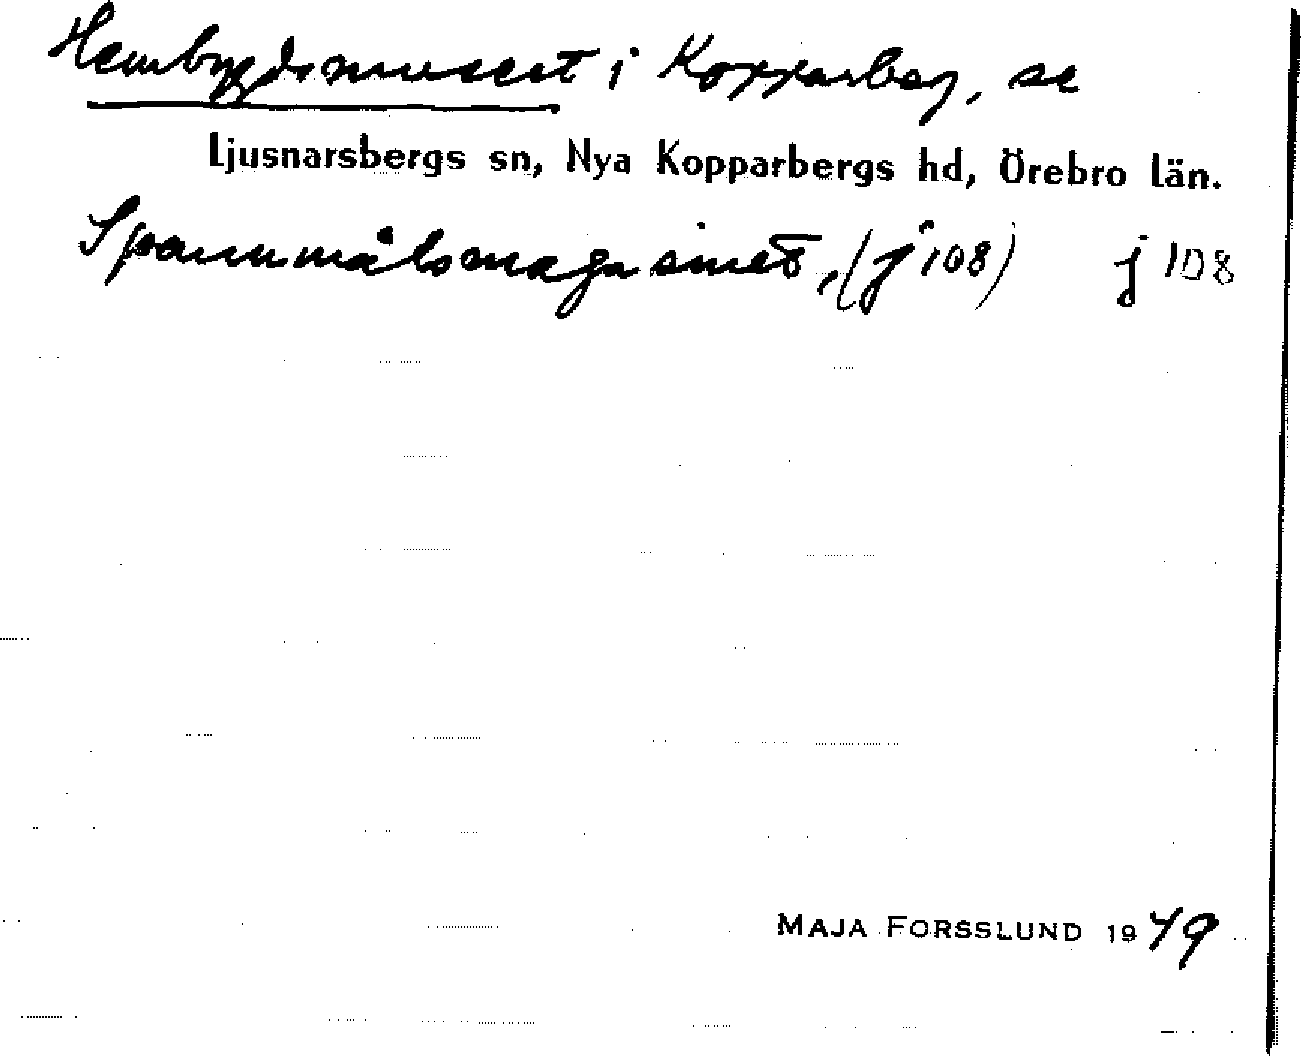 Hembygdsmuseet i Kopparberg, se
Ljusnarsbergs sn, Nya Kopparbergs hd, Örebro län.
Spannmålsmagasinet, (j 108) j 108
MAJA FORSSLUND 1949